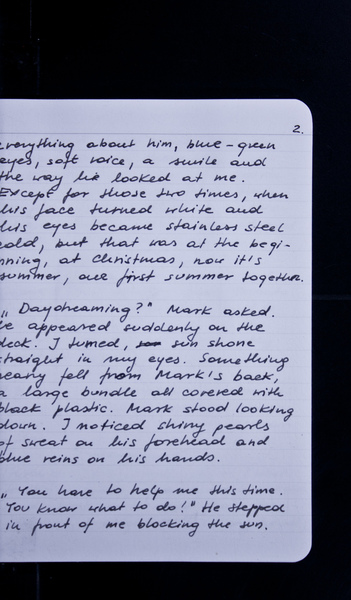 2.
everything about him, blue-green
eyes, soft voice, a smile and
the way he looked at me.
Except for those two times, when
his face turned white and
his eyes became stainless steel
cold, but that was at the begi-
nning, at christmas, now it's
summer, our first summer together.
„Daydreaming?" Mark asked.
He appeared suddenly on the
deck. I turned, sun shone
straight in my eyes. Something
heavy fell from Mark's back,
a large bundle all covered with
black plastic. Mark stood looking
down. I noticed shiny pearls
of sweat on his forehead and
blue veins on his hands.
„You have to help me this time.
You know what to do!" He stepped
in front of me blocking the sun.